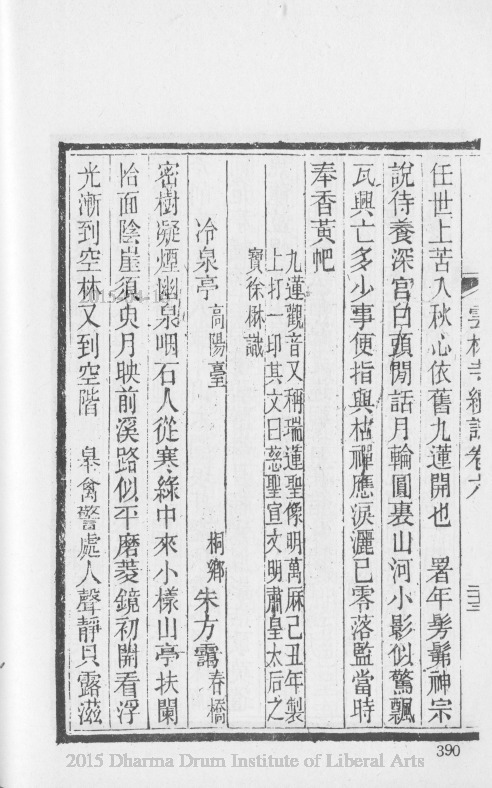 雲林寺續誌卷六
三三
任世上苦入秋心依舊九蓮開也　署年髣髴神宗
說侍養深宮白頭閒話月輪圓裏山河小影似驚飄
瓦興亡多少事便指與枯禪應淚灑已零落監當時
奉香黃帊
九蓮觀音又稱瑞蓮聖像明萬厤己丑年製
上打一印其文曰慈聖宣文明肅皇太后之
寶徐楙識
冷泉亭 高陽臺　桐鄉 朱方靄 春橋
密樹凝煙幽泉咽石人從寒綠中來小樣山亭扶闌
恰面陰崖須臾月映前溪路似平磨菱鏡初開看浮
光漸到空林又到空階　皋禽警處人聲靜只露滋
390
2015 Dharma Drum Institute of Liberal Arts